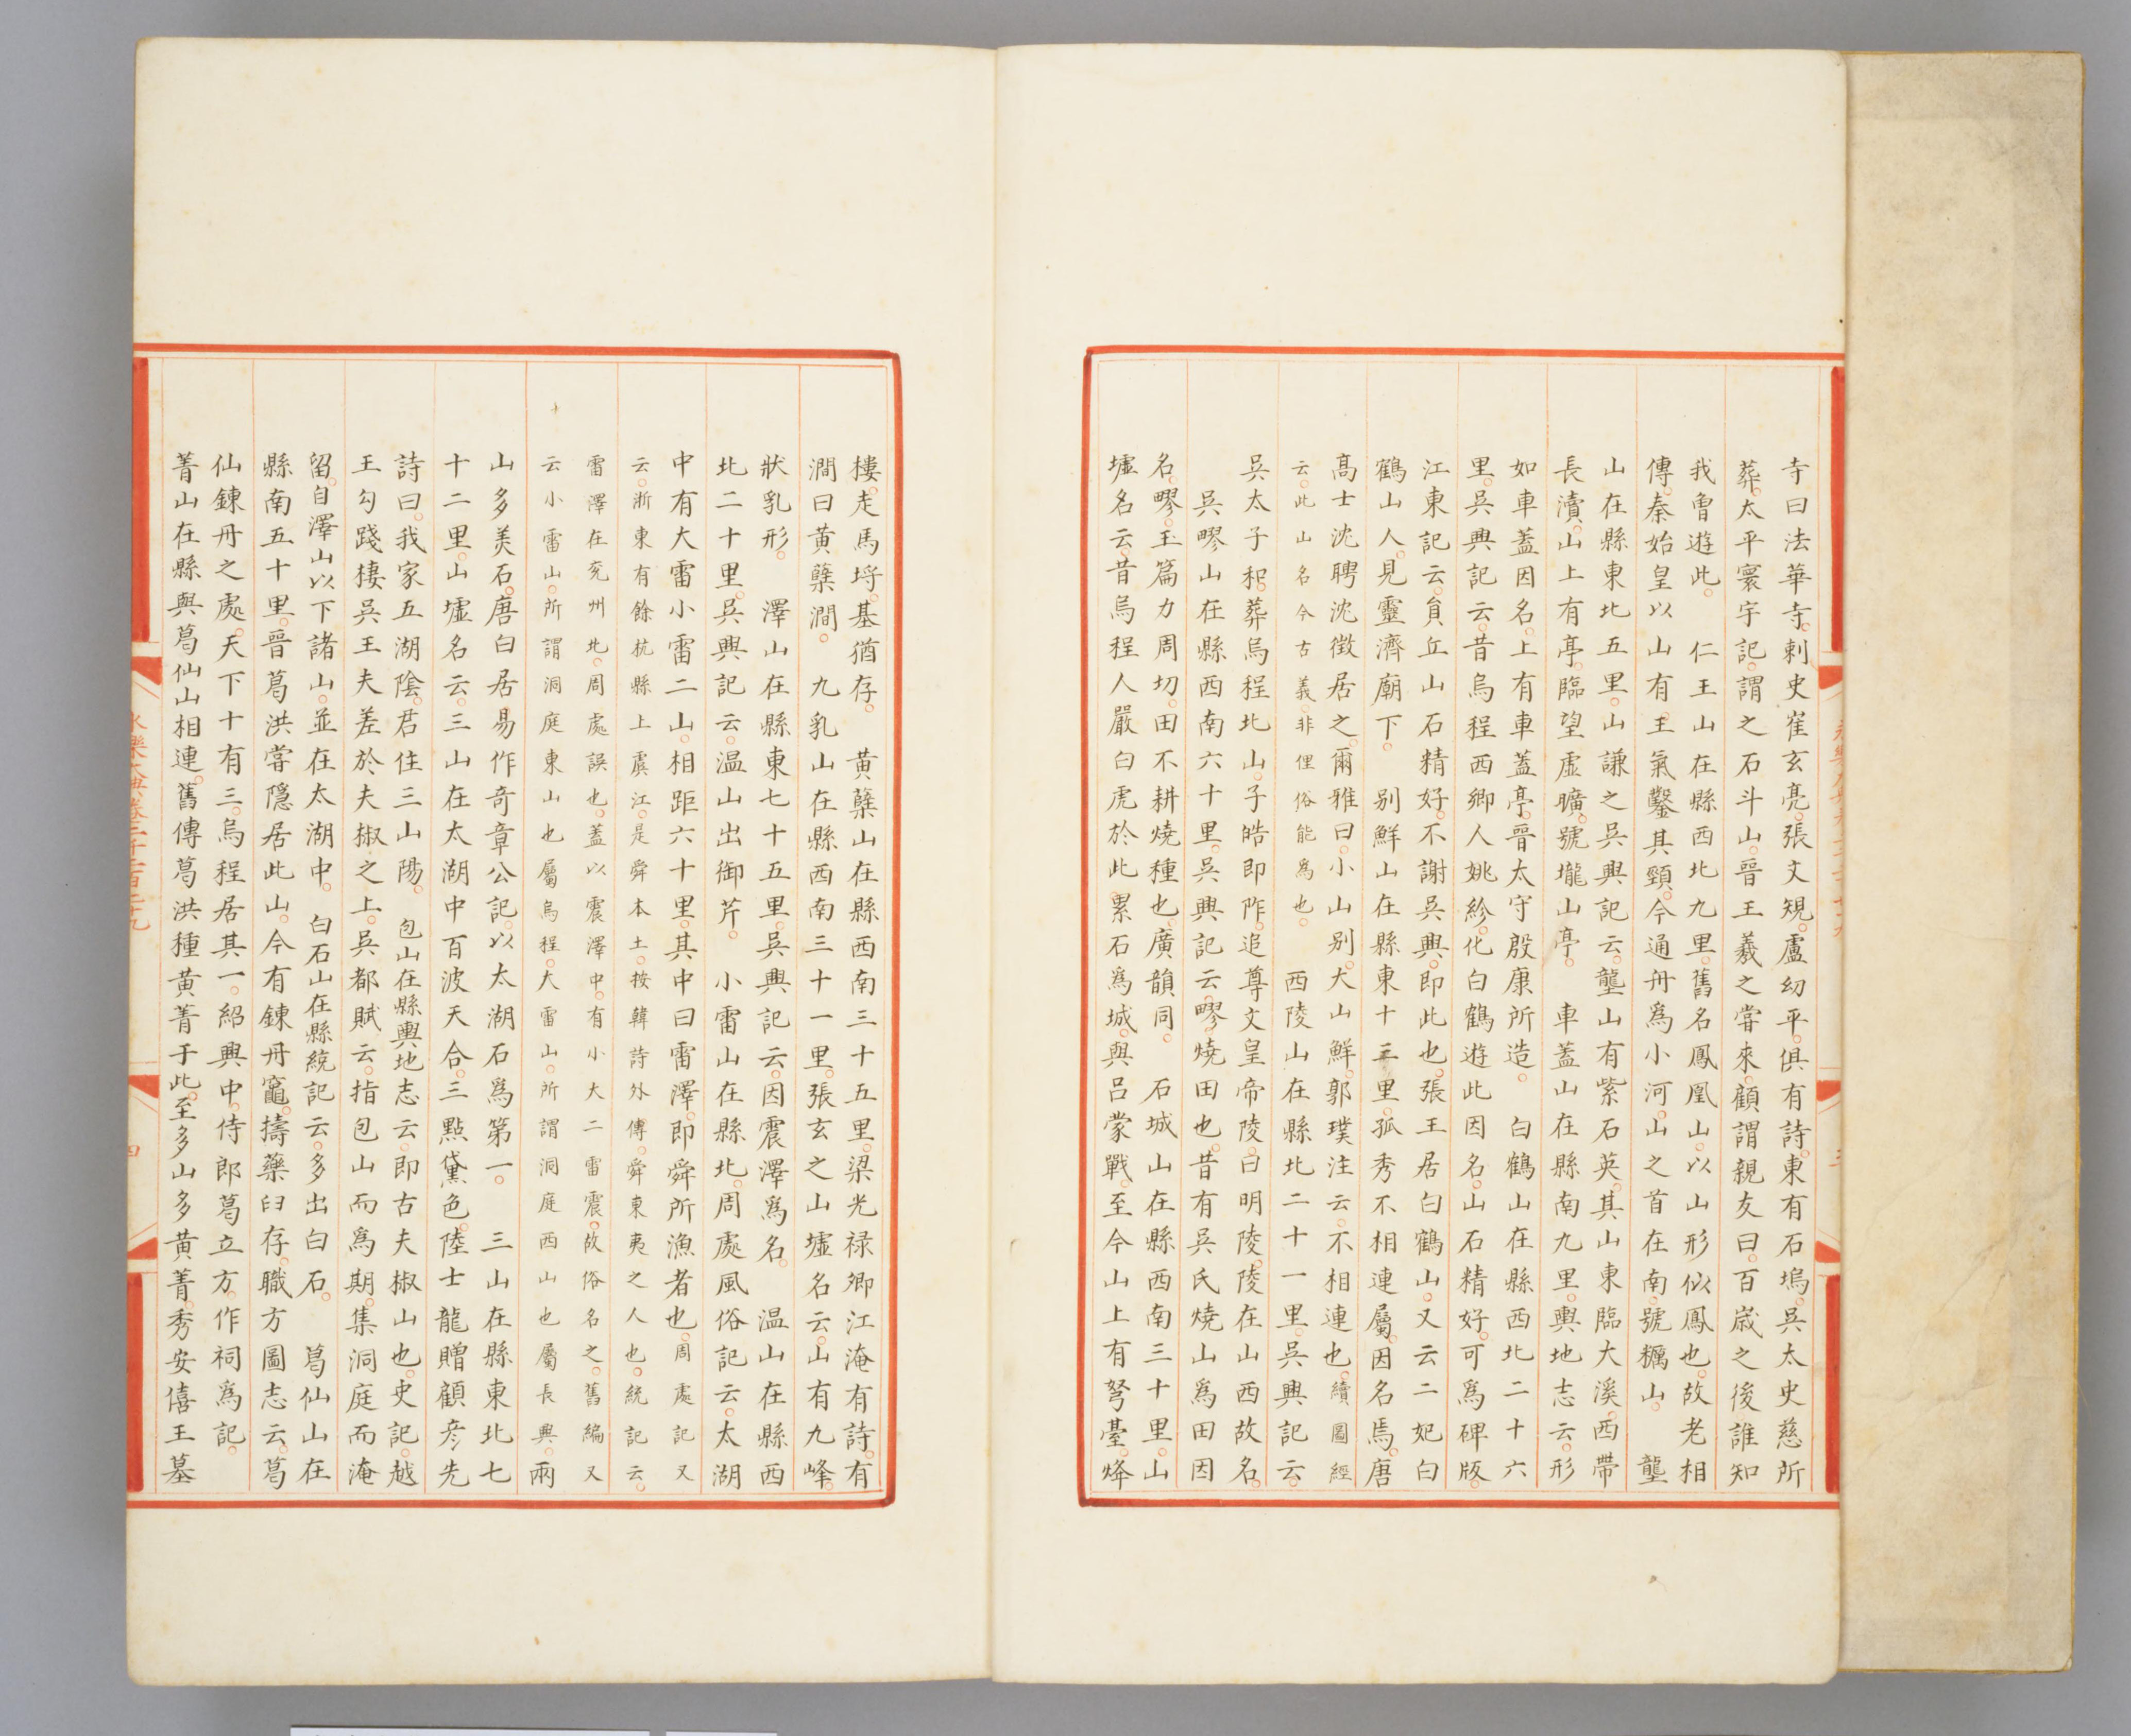 寺曰法華寺刺史崔玄亮張文規盧幼平俱有詩東有石塢吳太史慈所
葬太平寰宇記謂之石斗山晉王羲之嘗來顧謂親友曰百歲之後誰知
我曾遊此 仁王山在縣西北九里舊名鳳凰山以山形似鳳也故老相
傳秦始皇以山有王氣鑿其頸今通舟爲小河山之首在南號糲山 壟
山在縣東北五里山謙之吳興記云壟山有紫石英其山東臨大溪西帶
長瀆山上有亭臨望虛曠號壠山亭 車蓋山在縣南九里輿地志云形
如車蓋因名上有車蓋亭晉太守殷康所造 白鶴山在縣西北二十六
里吳興記云昔烏程西鄉人姚紾化白鶴遊此因名山石精好可爲碑版
江東記云負丘山石精好不謝吳興即此也張王居白鶴山又云二妃白
鶴山人見靈濟廟下 别鮮山在縣東十三里孤秀不相連屬因名焉唐
高士沈聘沈徵居之爾雅曰小山别大山鮮郭璞注云不相連也續圖經
云此山名今古義非俚俗能爲也 西陵山在縣北二十一里吳興記云
吳太子和葬烏程北山子皓即阼追尊文皇帝陵曰明陵陵在山西故名
吳疁山在縣西南六十里吳興記云疁燒田也昔有吳氏燒山爲田因
名疁玉篇力周切田不耕燒種也廣韻同 石城山在縣西南三十里山
墟名云昔烏程人嚴白虎於此累石爲城與呂蒙戰至今山上有弩臺烽
樓走馬埒基猶存 黄蘖山在縣西南三十五里梁光禄卿江淹有詩有
澗曰黄蘖澗 九乳山在縣西南三十一里張玄之山墟名云山有九峰
狀乳形 澤山在縣東七十五里吳興記云因震澤爲名 温山在縣西
北二十里吳興記云温山出御芹 小雷山在縣北周處風俗記云太湖
中有大雷小雷二山相距六十里其中曰雷澤即舜所漁者也周處記又
云浙東有餘杭縣上虞江是舜本土按韓詩外傳舜東夷之人也統記云
雷澤在兖州北周處誤也蓋以震澤中有小大二雷震故俗名之舊編又
云小雷山所謂洞庭東山也屬烏程大雷山所謂洞庭西山也屬長興兩
山多美石唐白居易作奇章公記以太湖石爲第一 三山在縣東北七
十二里山墟名云三山在太湖中百波天合三點黛色陸士龍贈顧彦先
詩曰我家五湖陰君住三山陽 包山在縣輿地志云即古夫椒山也史記越
王勾踐棲吳王夫差於夫椒之上吳都賦云指包山而爲期集洞庭而淹
留自澤山以下諸山並在太湖中 白石山在縣統記云多出白石 葛仙山在
縣南五十里晉葛洪嘗隱居此山今有鍊丹竈擣藥臼存職方圖志云葛
仙鍊丹之處天下十有三烏程居其一紹興中侍郎葛立方作祠爲記
菁山在縣與葛仙山相連舊傳葛洪種黄菁于此至多山多黄菁秀安僖王墓
永樂大典卷二千二百七十九
四